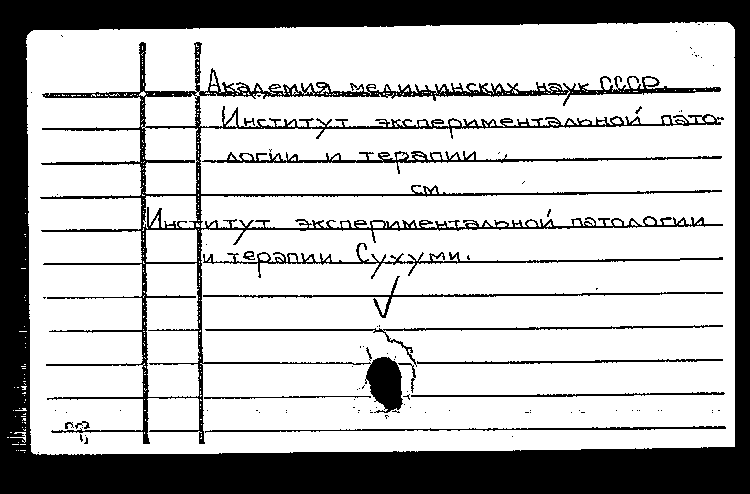 Академия медицинских наук СССР.
Институт экспериментальной пато-
логии и терапии
см.
Институт экспериментальной патологии
и терапии. Сухуми.